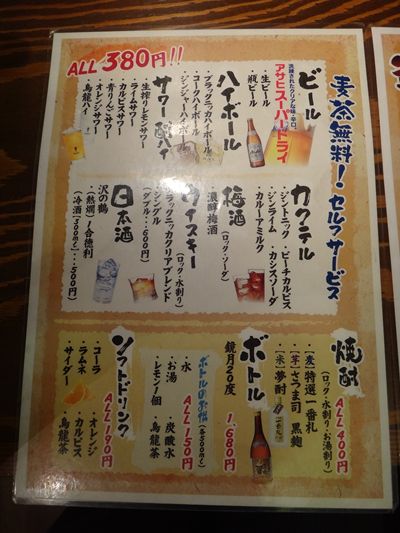 麦茶無料！セルフサービス
ALL 380円!!
ビール
洗練されたクリアな味・辛口。
アサヒスーパードライ
・生ビール
・瓶ビール
ハイボール
・ブラックニッカハイボール
・コークハイボール
・ジンジャーハイボール
サワー・酎ハイ
・生搾りレモンサワー
・ライムサワー
・カルピスサワー
・青りんごサワー
・オレンジサワー
・烏龍ハイ
カクテル
・ジントニック
・ピーチカルピス
・ジンライム
・カシスソーダ
・カルーアミルク
梅酒
(ロック・ソーダ)
濃醇梅酒
ウイスキー
(ロック・水割り)
ブラックニッカクリアブレンド
シングル
(ダブル・・600円)
日本酒
沢の鶴
・(熱燗)1合徳利
(冷酒)(300ml)・・500円)
焼酎
ALL 400円
(ロック・水割り・お湯割り)
・【麦】特選 一番札
・【芋】さつま司 黒麹
・【米】夢酎
ボトル
鏡月20度
1,680円
ボトルのお供
(各500ml)
ALL 150円
・水
・炭酸水
・お湯
・烏龍茶
・レモン1個
ソフトドリンク
ALL 190円
・コーラ
・オレンジ
・ラムネ
・カルピス
・サイダー
・烏龍茶